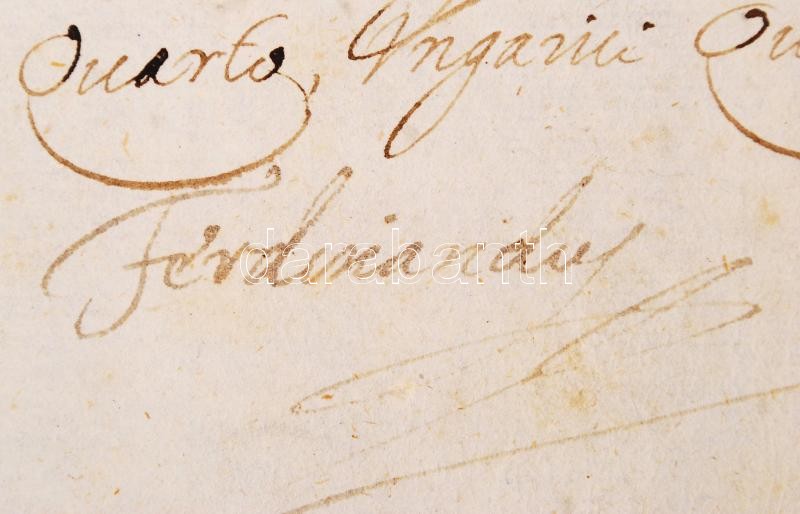 Quarto, Ungarici Qu
Ferdinandus
darabanth